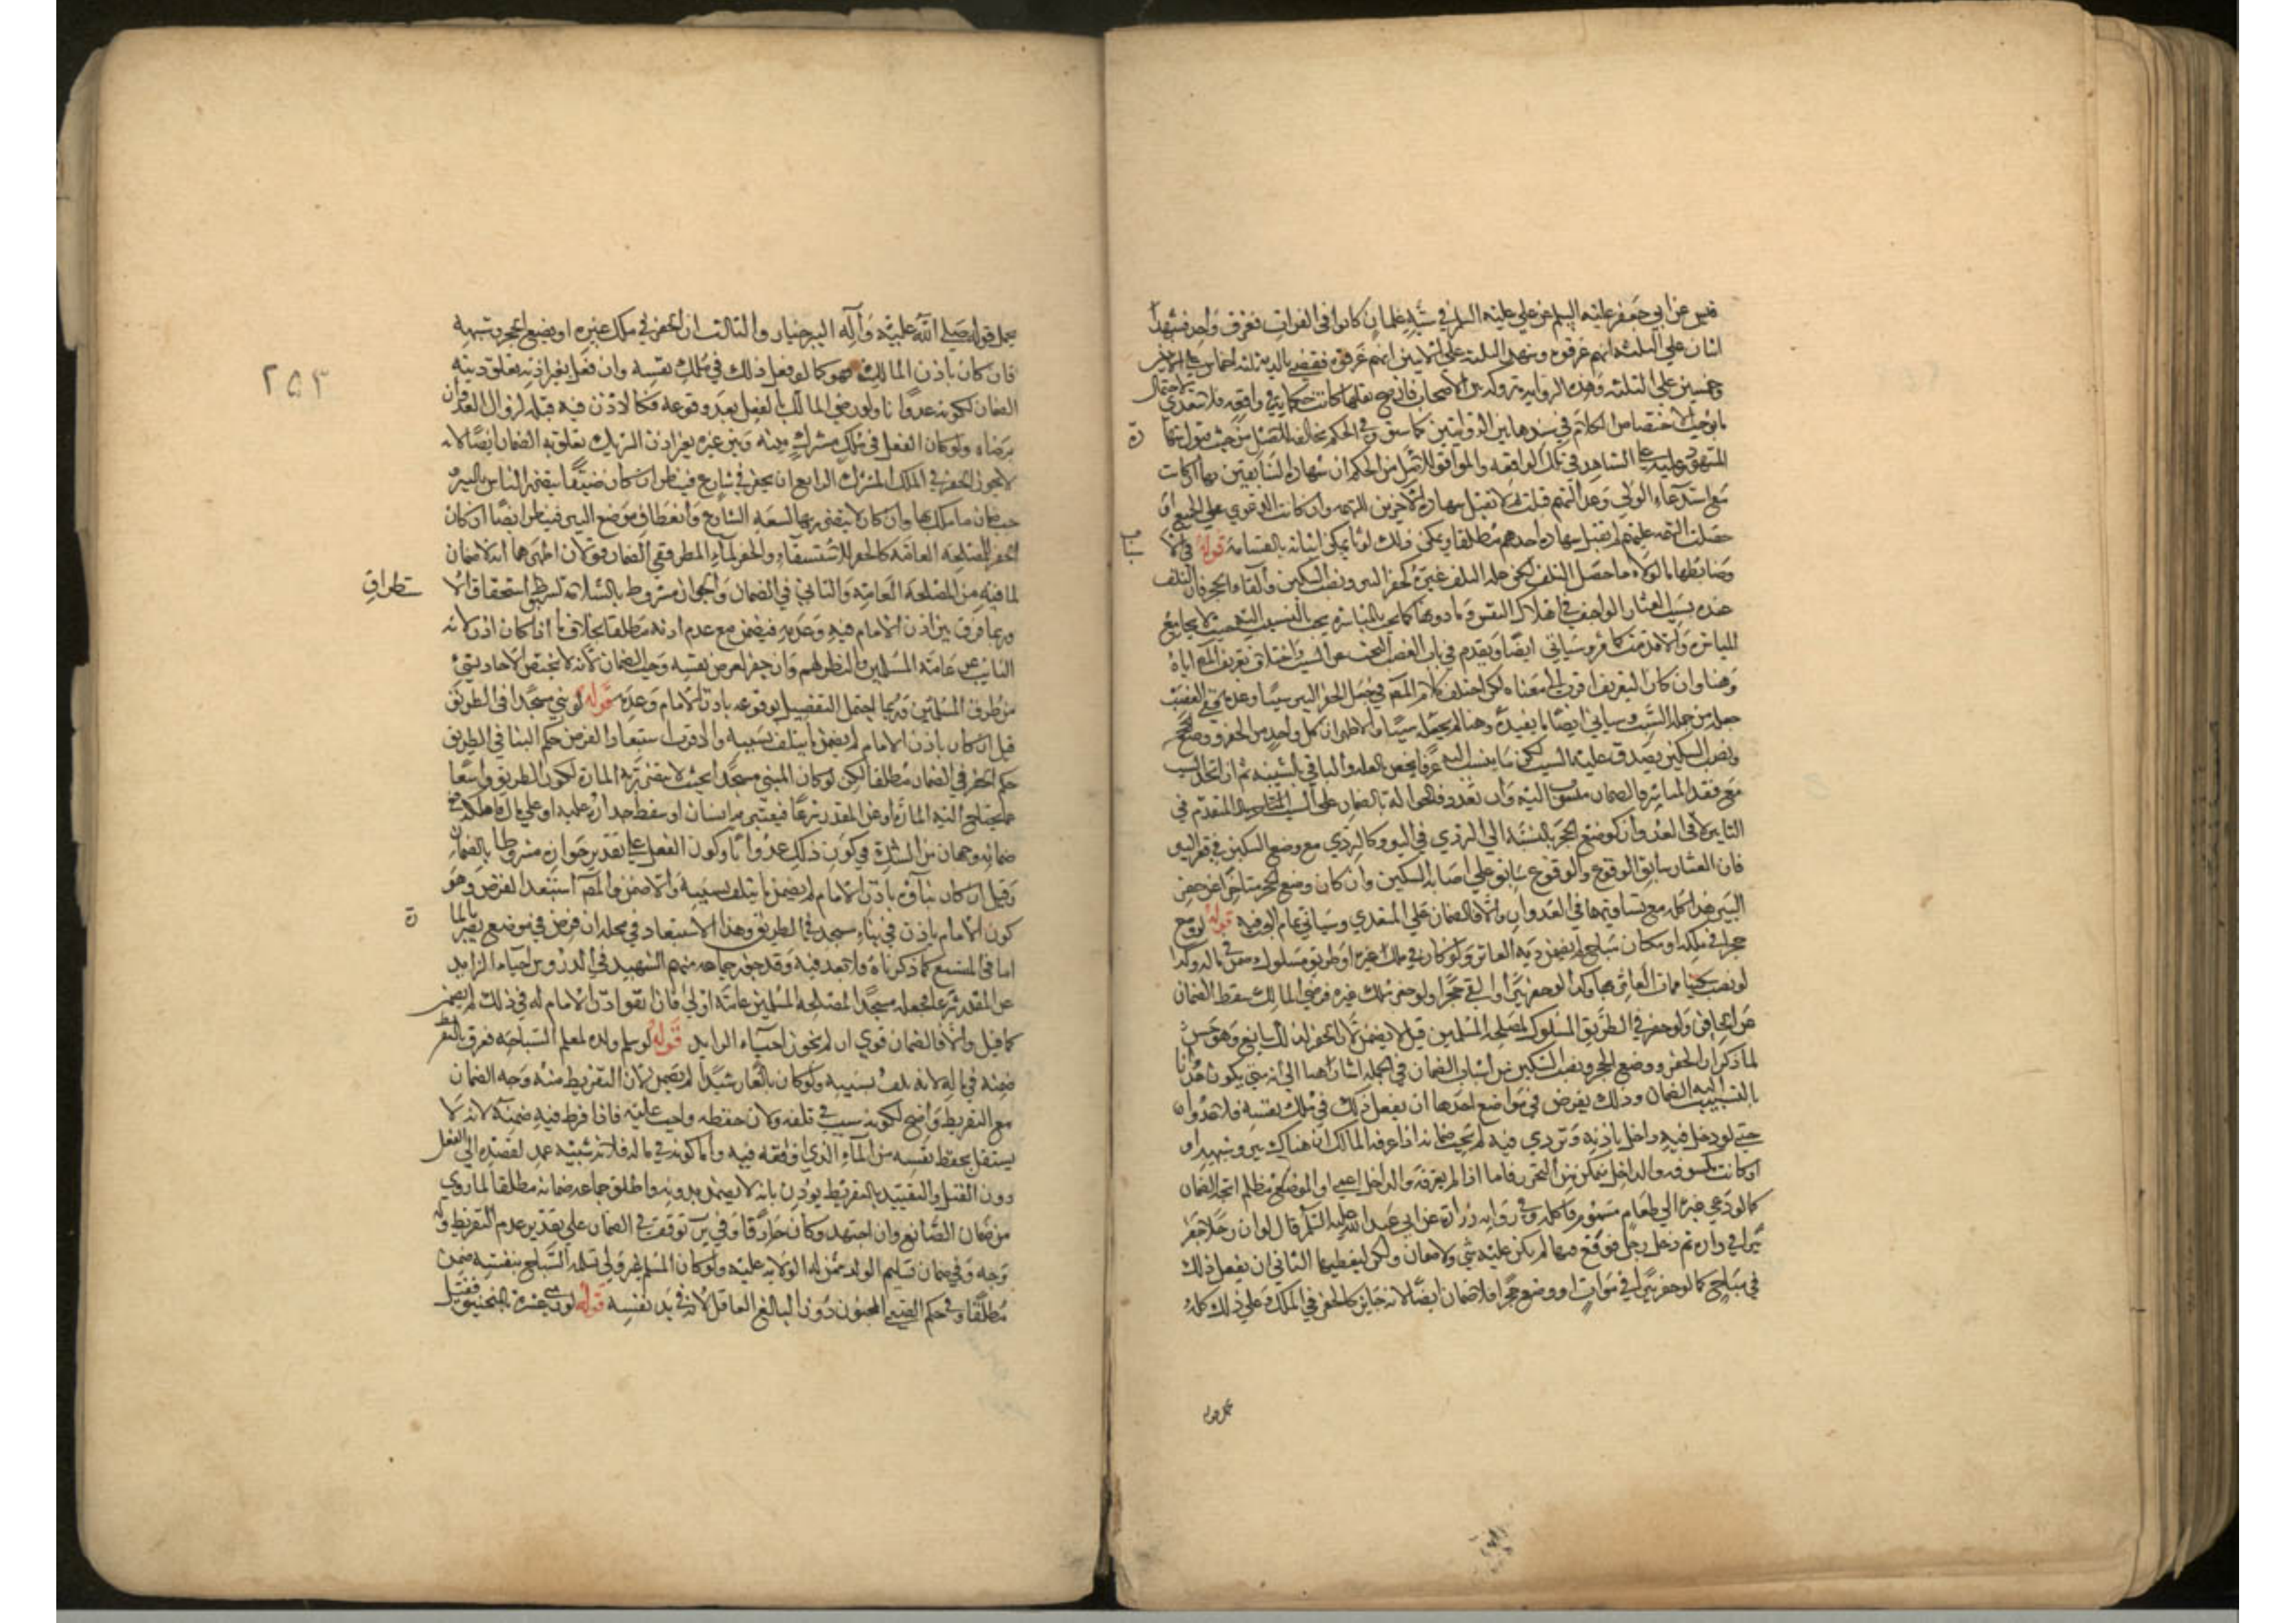 قيس عن ابي جعفر عليه السلم عن علي عليه السلم في ستة غلمان كانوا في الفرات فغرق واحد فشهد
اثنان علي الثلثة انهم غرقوه وشهد الثلثة علي الاثنين انهم غرقوه فقضي بالدية ثلثه اخماس علي الاثنين
وخمسين علي الثلثة وهذه الرواية متروكه بين الاصحاب فان صح نقلها كانت حكاية في واقعه فلا تتعدي لاحتمال
ما يوجب الاختصاص الكلام في سندها بين الروايتين كما سبق وفي الحكم مخالف للاصل من حيث قبول شهادة
المشهود عليه علي الشاهد في تلك الواقعه والموافق للاصل من الحكم ان شهادة السابقين بها ان كانت
مع استدعاء الولي وعدالتهم قبلت ثم لا تقبل شهادة الاخرين للتهمه وان كانت الدعوي علي الجميع او
حصلت التهمه عليهم لم تقبل شهادة احدهم مطلقا ويكون ذلك لوثا يمكن اثباته بالقسامة قوله في الاسباب
وضابطها ما لولاه ما حصل التلف لكن عله التلف غيره كحفر البير ونصب السكين والقاء الحجر فان التلف
عنده بسبب العثار الواجب في اهلاك النفس وما دونها كما يجب بالمباشرة يجب بالتسبيب الذي حيث لا يجامع
المباشرة والا قدمت كما مر وسياتي ايضا ويقدم في باب الغصب البحث عن السبب واختلاف تعريف المص اياه
وهنا وان كان التعريف اقرب الي معناه لكن اختلف كلام المص في جعل الحفر البير سببا وعدمه ففي الغصب
جعله من جملة السبب وسياتي ايضا ما يفيده وهنا لم يجعله سببا والاظهر ان كل واحد من الحفر ووضع الحجر
ونصب السكين يصدق عليه السبب لكن ما ينسب اليه عرفا يخص العله والباقي بالسببيه ثم ان اتحد السبب
مع فقد المباشر فالضمان منسوب اليه وان تعدد فالحوالة بالضمان علي السبب المتقدم في
التاثير لا في العدوان كوضع الحجر بالنسبة الي التردي في البير وكالتردي مع وضع السكين في قعر البير
فان العثار سابق الوقوع والوقوع سابق علي اصابة السكين وان كان وضع الحجر متاخرا عن حفر
البير هذا كله مع تساويهما في العدوان والا فالضمان علي المتعدي وسياتي تمام البحث فيه قوله لو وضع
حجرا في ملكه او مكان مباح لم يضمن دية العاثر ولو كان في ملك غيره او طريق مسلوك ضمن في ماله وكذا
لو نصب سكينا فمات العاثر بها وكذا لو حفر بئرا او القي حجرا ولو حفر في ملك غيره فرضي المالك سقط الضمان
عن الحافر ولو حفر في الطريق المسلوك لمصلحة المسلمين قيل لا يضمن لان الحفر لذلك سايغ وهو حسن
لما ذكر ان الحفر ووضع الحجر ونصب السكين من اسباب الضمان في الجملة اشار هنا الي انه متي يكون عدوانا
بالتسبيب الضمان وذلك يفرض في مواضع احدها ان يفعل ذلك في ملك نفسه فلا عدوان
حتي لو دخل فيه داخل باذنه وتردي فيه لم يجب ضمانه اذا عرفه المالك ان هناك بير وشبهه او
او كانت مكشوفه والداخل متمكن من التحرز فاما اذا لم يعرفه والداخل اعمي او الموضع مظلم اتجه الضمان
كما لو دعي غيره الي طعام مسموم فاكله وفي رواية زرارة عن ابي عبد الله عليه السلم قال لو ان رجلا حفر
بئرا في داره ثم دخل رجل فوقع فيها لم يكن عليه شي ولا ضمان ولكن ليغطيها الثاني ان يفعل ذلك
في مباح كما لو حفر بئرا في موات او وضع حجرا فلا ضمان ايضا لانه جايز كالحفر في الملك وعلي ذلك كله
يحمل قوله
يحمل قوله صلي الله عليه وآله البير جبار والثالث ان الحفر في ملك غيره او يضع الحجر وشبهه
فان كان باذن المالك فهو كما لو فعل ذلك في ملك نفسه وان فعل بغير اذنه تعلق ديته
الضمان لكونه عدوانا ولو رضي المالك بالفعل بعد وقوعه فكالاذن فيه قبله لزوال العدوان
برضاه ولو كان الفعل في ملك مشترك بينه وبين غيره بغير اذن الشريك تعلق به الضمان ايضا لانه
لا يجوز الحفر في الملك المشترك الرابع ان يحفر في شارع فينظر ان كان ضيقا يتضرر الناس بالبير
ضمان ما هلك بها وان كان لا يتضرر بها لسعة الشارع وانعطاف موضع البير فينظر ايضا ان كان
الحفر لمصلحة العامة كالحفر للاستسقاء والحفر لماء المطر ففي الضمان قولان اظهرهما انه لا ضمان
لما فيه من المصلحة العامة والثاني الضمان والجواز مشروط بالسلامة استطراق
وربما فرق بين اذن الامام فيه وعدمه فيضمن مع عدم اذنه مطلقا بخلاف ما اذا كان اذن لانه
النايب عن عامة المسلمين والناظر لهم وان حفر لغرض نفسه وجب الضمان لانه لا يختص الاحاد بشئ
من طرق المسلمين وربما احتمل التفصيل بوقوعه باذن الامام وعدمه قوله لو بني مسجدا في الطريق
قيل ان كان باذن الامام لم يضمن ما يتلف بسببه والاقرب استبعاد الفرض حكم البنا في الطريق
حكم الحفر في الضمان مطلقا لكن لو كان المبني مسجدا بحيث لا يتضرر به المارة لكون الطريق واسعا
عما يحتاج اليه المارة او عن المقدر شرعا فيعثر به انسان او سقط جداره عليه او علي مال فاهلكه ففي
ضمانه وجهان من الشك في كون ذلك عدوانا وكون الفعل علي تقدير جوازه مشروطا بالضمان
وقيل ان كان بناؤه باذن الامام لم يضمن ما يتلف بسببه والا ضمن والمص استبعد الفرض وهو
كون الامام ياذن في بناء مسجد في الطريق وهذا الاستبعاد في محله ان فرض في موضع يضر بالمارة
اما في المتسع كما ذكرناه فلا بعد فيه وقد جوز جماعه منهم الشهيد في الدروس احياء الزايد
عن المقدر شرعا فجعله مسجدا لمصلحة المسلمين عامة اولي فان اتفق اذن الامام له في ذلك لم يضمن
كما قيل والا فالضمان قوي ان لم يجوز احياء الزايد قوله لو سلم ولده لمعلم السباحه فغرق بالتفريط
ضمنه في ماله لانه تلف بسببه ولو كان بالغا رشيدا لم يضمن لان التفريط منه وجه الضمان
مع التفريط واضح لكونه سبب في تلفه ولان حفظه واجب عليه فاذا فرط فيه ضمنه لانه لا
يستقل بحفظ نفسه من الماء الذي اوقعه فيه واما كونه في ماله فلانه شبيه عمد لقصده الي الفعل
دون القتل والتقييد بالتفريط يوذن بانه لا يضمن بدونه واطلق جماعه ضمانه مطلقا لما روي
من ضمان الصانع وان اجتهد وكان حاذقا وفي توقف في الضمان علي تقدير عدم التفريط وله
وجه وفي ضمان تسليم الولد ممن له الولاية عليه ولو كان المسلم غير ولي تسلمه السباح بنفسه ضمن
مطلقا وفي حكم الصبي المجنون دون البالغ العاقل لانه في يد نفسه قوله لو رمي عشرة بالمنجنيق فقتل
٢٥٣